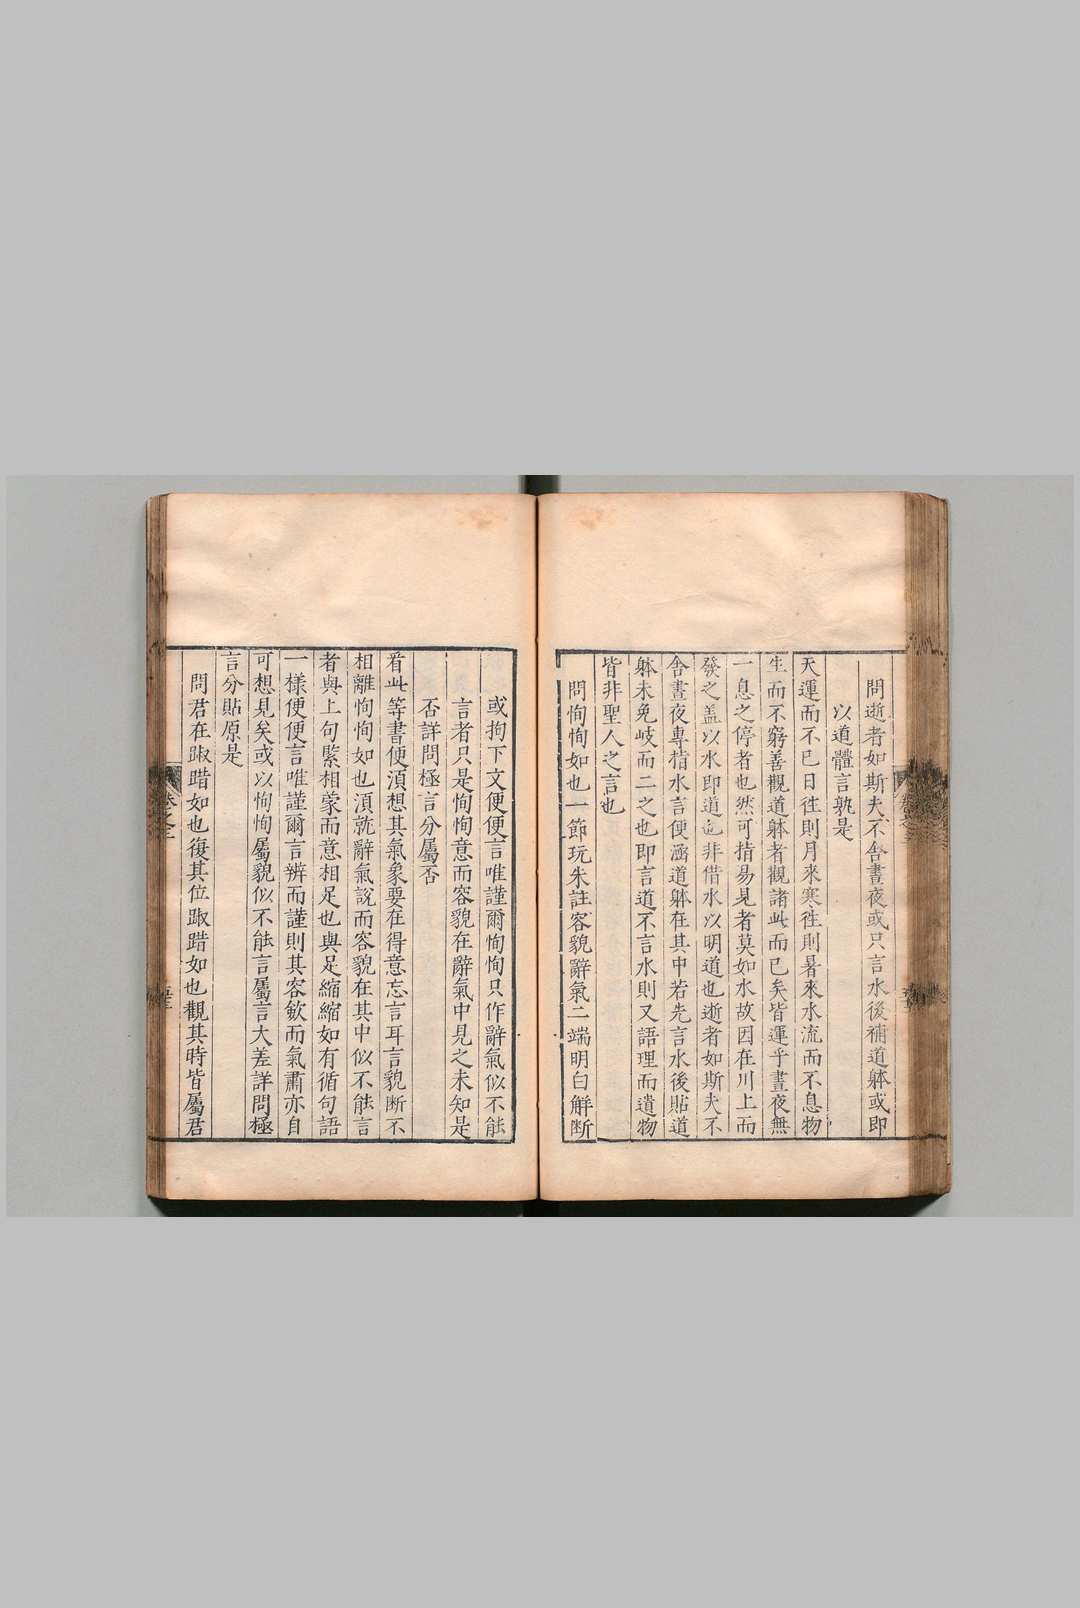 問逝者如斯夫不舎晝夜或只言水後補道躰或即
以道體言孰是
天運而不已日徃則月來寒徃則暑來水流而不息物
生而不窮善觀道躰者觀諸此而已矣皆運乎晝夜無
一息之停者也然可指易見者莫如水故因在川上而
發之盖以水即道也非借水以明道也逝者如斯夫不
舎晝夜專指水言便涵道躰在其中若先言水後貼道
躰未免岐而二之也即言道不言水則又語理而遺物
皆非聖人之言也
問恂恂如也一節玩朱註容貌辭氣二端明白觧断
或拘下文便便言唯謹爾恂恂只作辭氣似不能
言者只是恂恂意而容貌在辭氣中見之未知是
否詳問極言分屬否
看此等書便湏想其氣象要在得意忘言耳言貌断不
相離恂恂如也湏就辭氣說而容貌在其中似不能言
者與上句緊相蒙而意相足也與足縮縮如有循句語
一樣便便言唯謹爾言辨而謹則其容欽而氣肅亦自
可想見矣或以恂恂屬貌似不能言屬言大差詳問極
言分貼原是
問君在踧踖如也復其位踧踖如也觀其時皆屬君